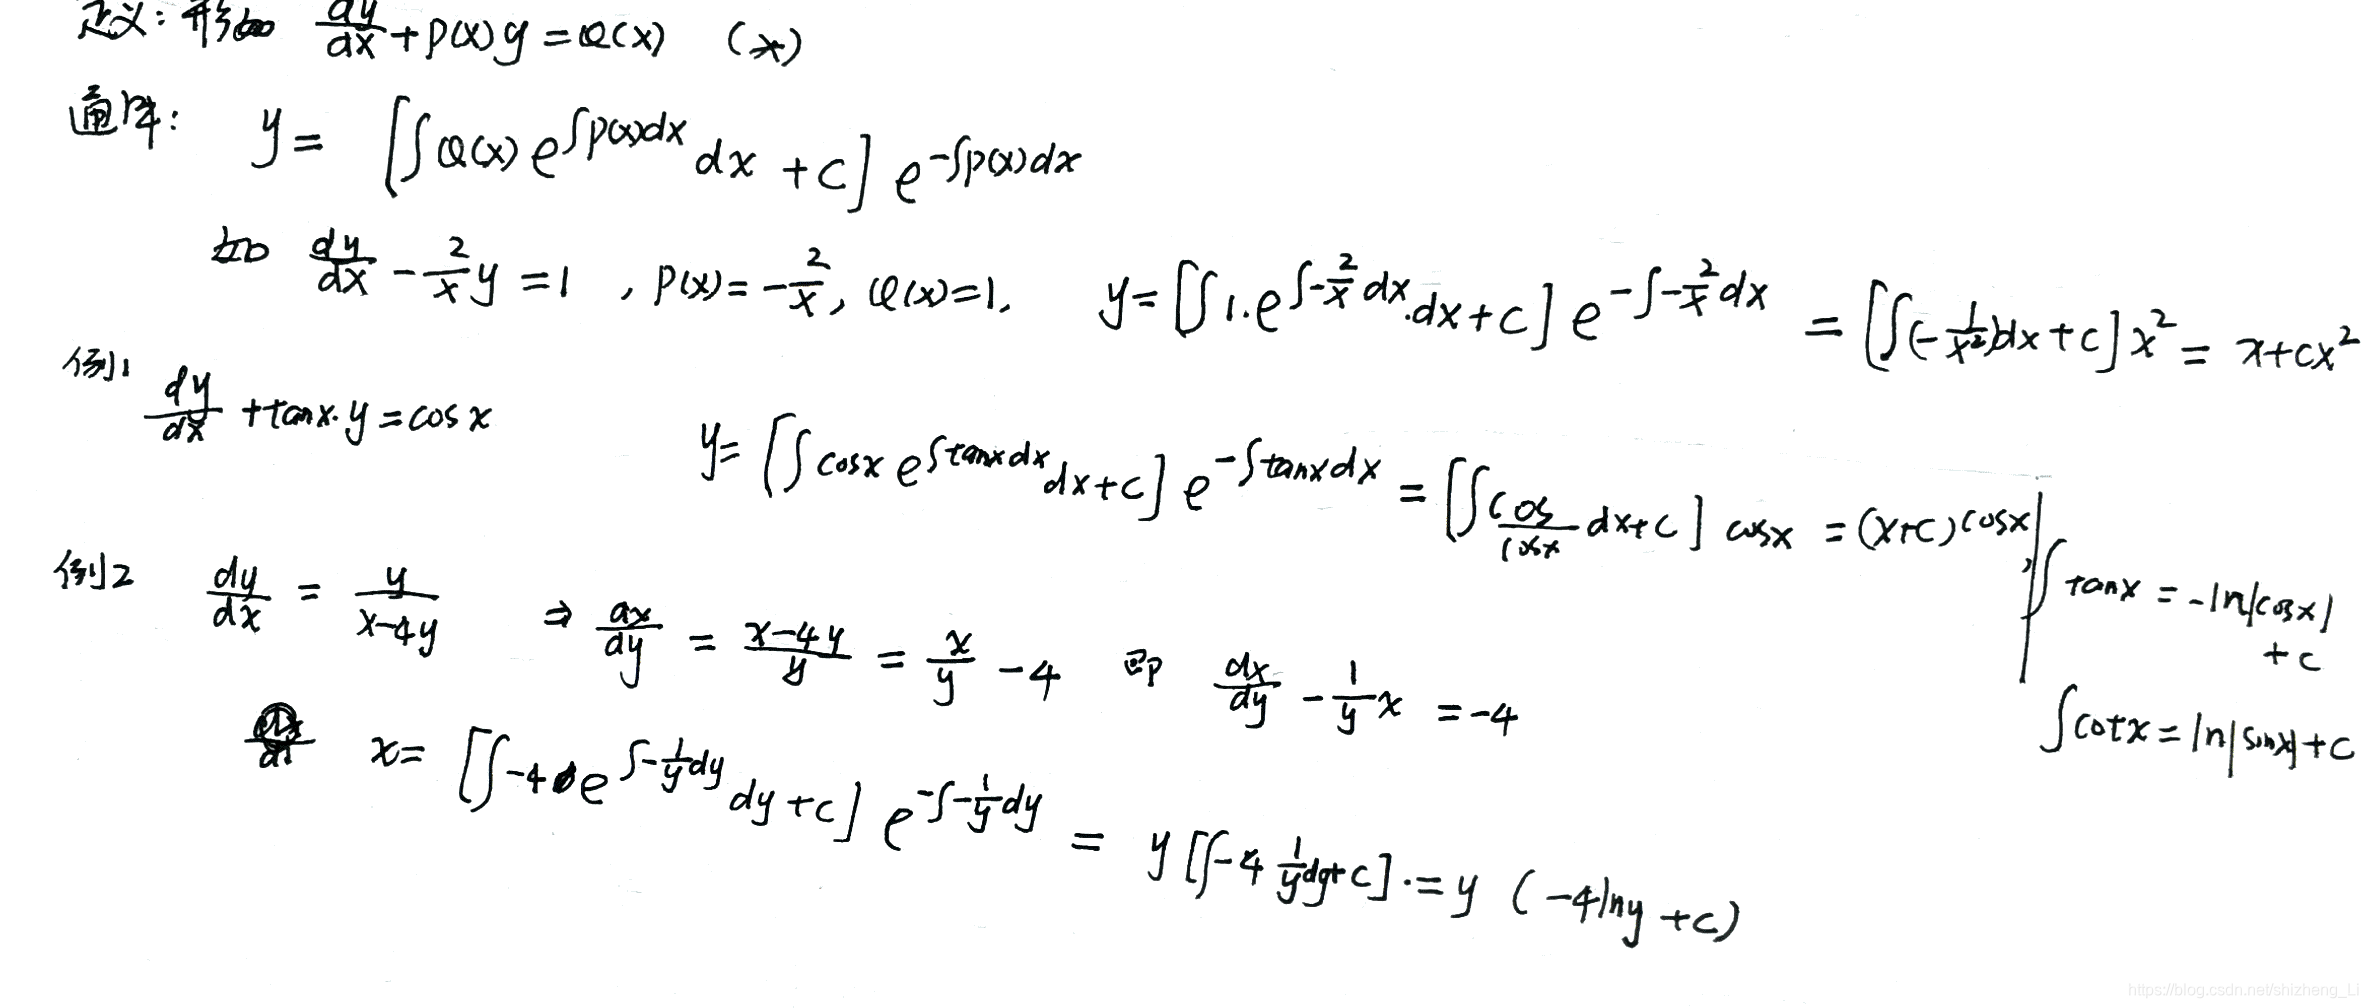 定义: 形如 dy/dx + P(x)y = Q(x) (*)
通解: y = [∫Q(x) e^{∫P(x)dx} dx + C] e^{-∫P(x)dx}
如 dy/dx - 2/x y = 1 , P(x) = -2/x, Q(x)=1. y = [∫1·e^{∫-2/x dx}·dx + C] e^{-∫-2/x dx} = [∫(-1/x²)dx + C] x² = x + cx²
例1 dy/dx + tanx·y = cos x y = [∫cosx e^{∫tanxdx} dx + C] e^{-∫tanxdx} = [∫cos/cosx dx + C] cosx = (x+C)cosx
∫tanx = -ln|cosx| + C
例2 dy/dx = y/(x-4y) ⇒ dx/dy = (x-4y)/y = x/y - 4 即 dx/dy - 1/y x = -4
∫cotx = ln|sinx| + C
x = [∫-4 e^{∫-1/y dy} dy + C] e^{-∫-1/y dy} = y[∫-4 1/y dy + C]·= y (-4lny + C)
https://blog.csdn.net/shizheng_Li